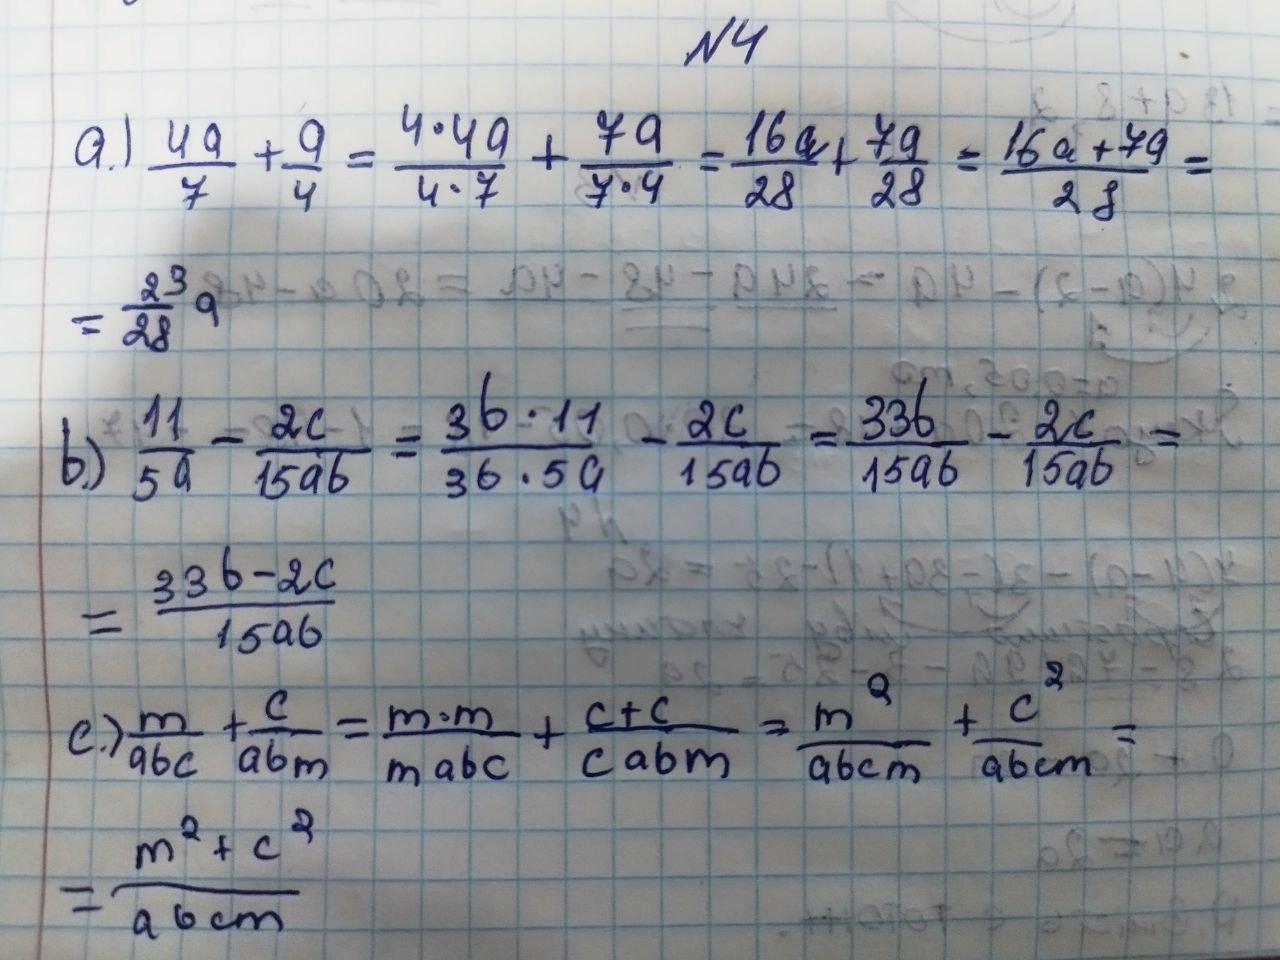 N4
a.) 4a/7 + a/4 = 4·4a/4·7 + 7a/7·4 = 16a/28 + 7a/28 = 16a+7a/28 =
= 23/28 a
b.) 11/5a - 2c/15ab = 3b·11/3b·5a - 2c/15ab = 33b/15ab - 2c/15ab =
= 33b-2c/15ab
c.) m/abc + c/abm = m·m/mabc + c+c/cabm = m²/abcm + c²/abcm =
= m²+c²/abcm